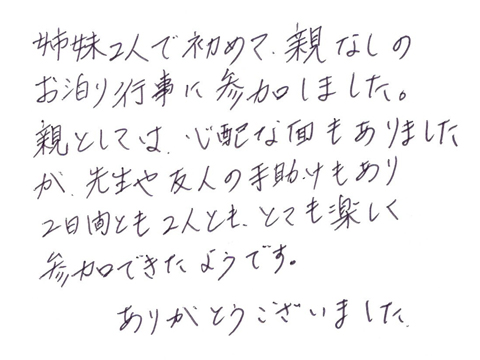 姉妹2人で初めて、親なしの
お泊り行事に参加しました。
親としては、心配な面もありました
が、先生や友人の手助けもあり
2日間とも2人とも、とても楽しく
参加できたようです。
ありがとうございました。